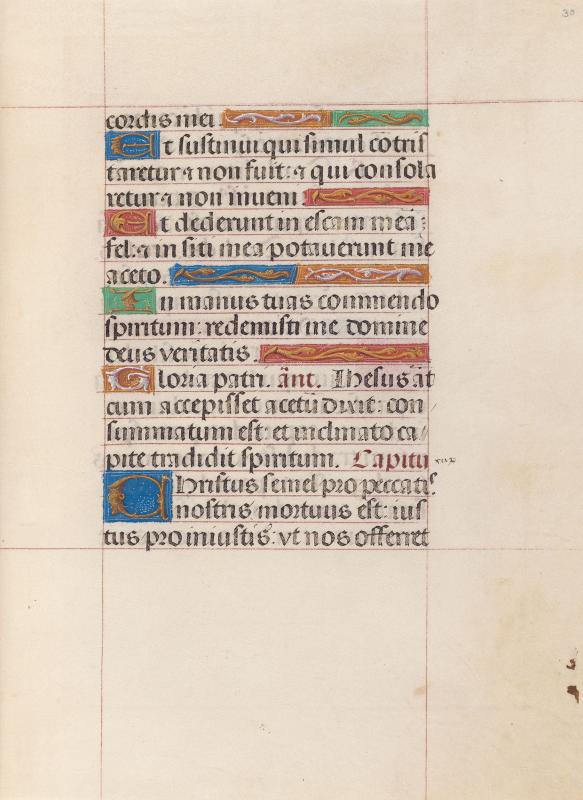 30
cordis mei
Et sustinui qui simul cōtris
taretur ⁊ non fuit: ⁊ qui consola
retur ⁊ non inueni
Et dederunt in escam meā:
fel: ⁊ in siti mea potauerunt me
aceto.
In manus tuas commendo
spiritum: redemisti me domine
deus veritatis.
Gloria patri. ānt. Ihesus āt
cum accepisset acetū dixit: con
summatum est: et inclinato ca/
pite tradidit spiritum. Capitu
Christus semel pro peccatis
nostris mortuus est: ius
tus pro iniustis: vt nos offerret